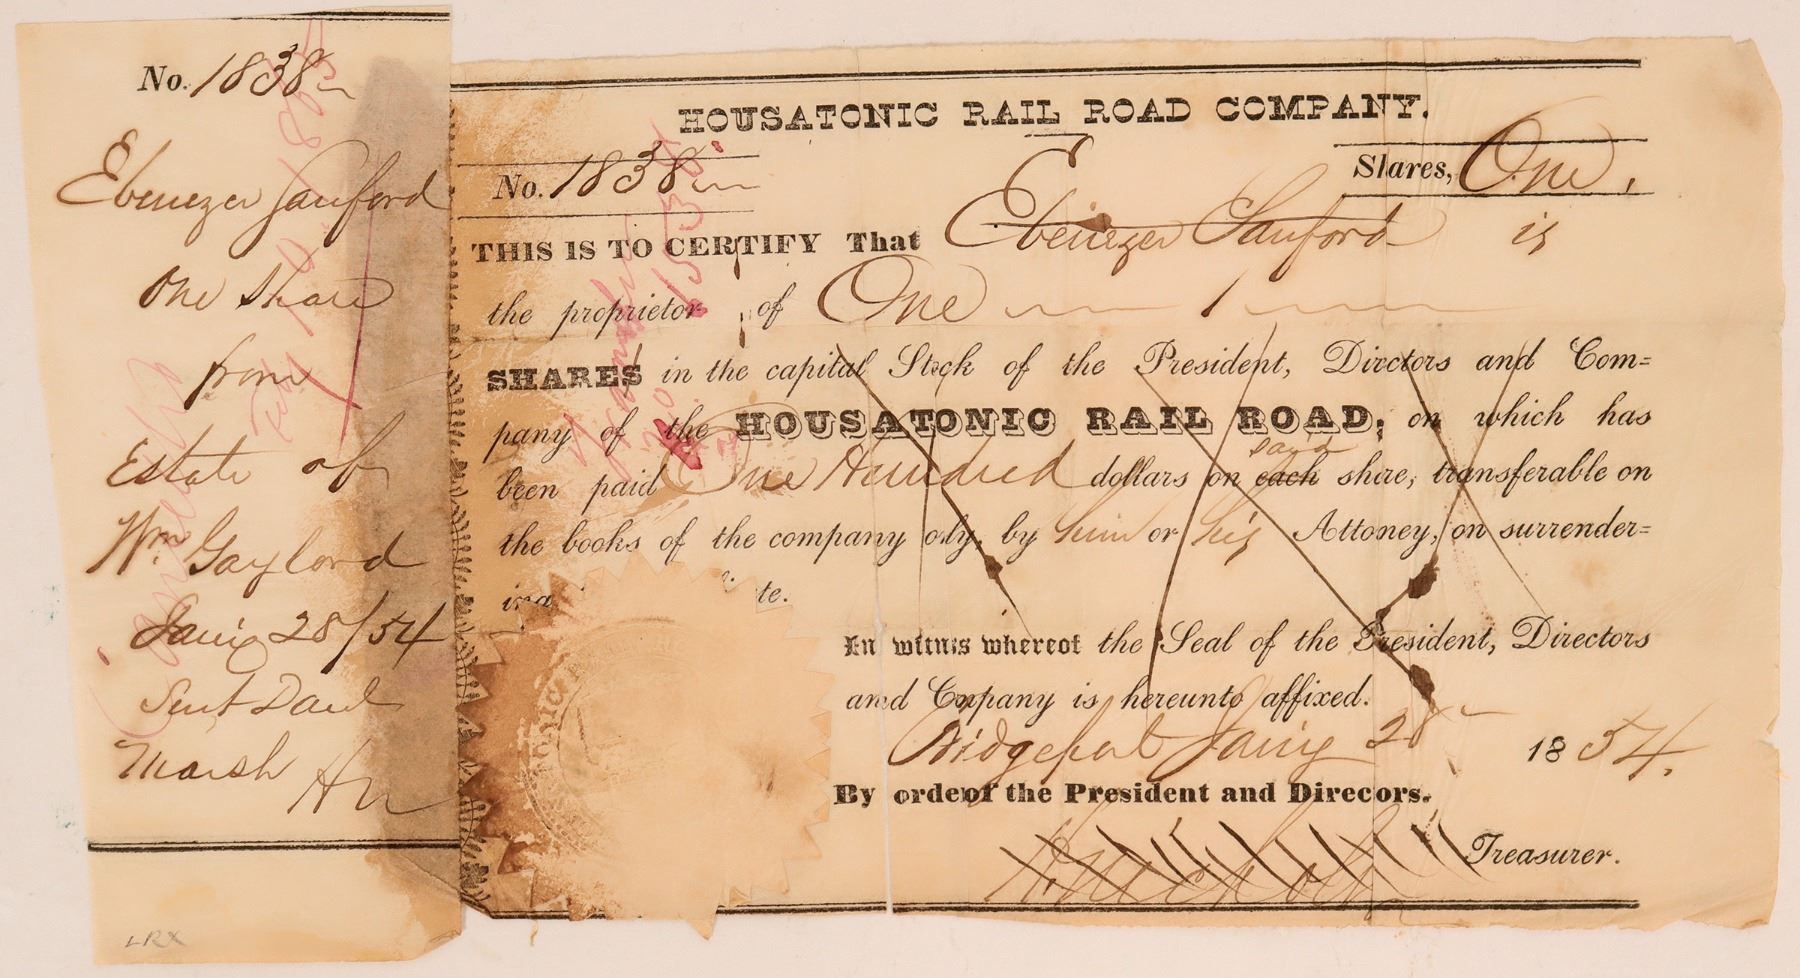 No. 1838
Ebenezer Sanford
One Share
from
Estate of
Wm Gaylord
Jany 28/54
Sent Danl
Marsh
LRX
HOUSATONIC RAIL ROAD COMPANY.
No. 1838
Shares, One.
THIS IS TO CERTIFY That Ebenezer Sanford is
the proprietor of One 1
SHARES in the capital Stock of the President, Directors and Com=
pany of the HOUSATONIC RAIL ROAD, on which has
been paid One Hundred dollars on each said share, transferable on
the books of the company only, by him or his Attoney, on surrender=
te.
In witnss whereof the Seal of the President, Directors
and Company is hereunto affixed.
Bridgeport Jany 28 1854.
By order of the President and Direcors.
Treasurer.
Cancelled